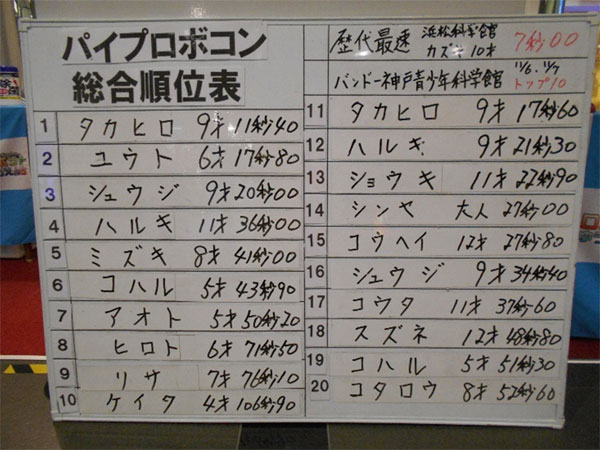 パイプロボコン
総合順位表
1 タカヒロ 9才 11秒40
2 ユウト 6才 17秒80
3 シュウジ 9才 20秒00
4 ハルキ 11才 36秒00
5 ミズキ 8才 41秒00
6 コハル 5才 43秒90
7 アオト 5才 50秒20
8 ヒロト 6才 71秒50
9 リサ 7才 76秒10
10 ケイタ 4才 106秒90
歴代最速 浜松科学館 カズキ 10才 7秒00
バンドー神戸青少年科学館 11/6、11/7 トップ10
11 タカヒロ 9才 17秒60
12 ハルキ 9才 21秒30
13 ショウキ 11才 22秒90
14 シンヤ 大人 27秒00
15 コウヘイ 12才 27秒80
16 シュウジ 9才 34秒40
17 コウタ 11才 37秒60
18 スズネ 12才 48秒80
19 コハル 5才 51秒30
20 コタロウ 8才 52秒60